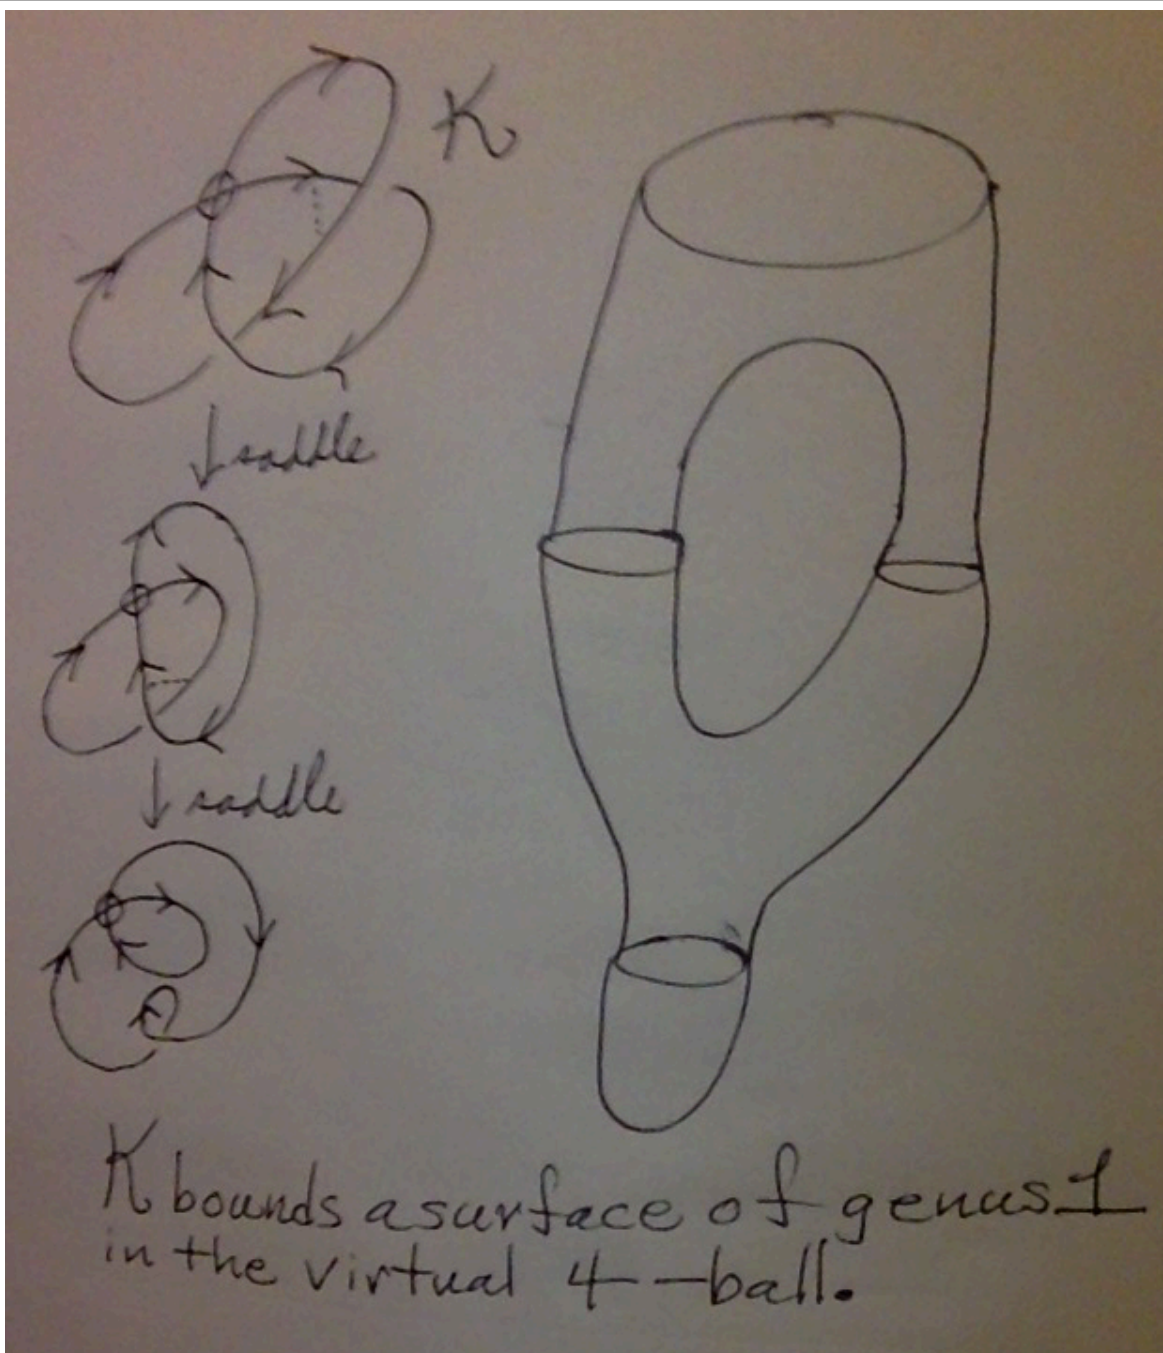 K
saddle
saddle
K bounds a surface of genus 1
in the virtual 4-ball.